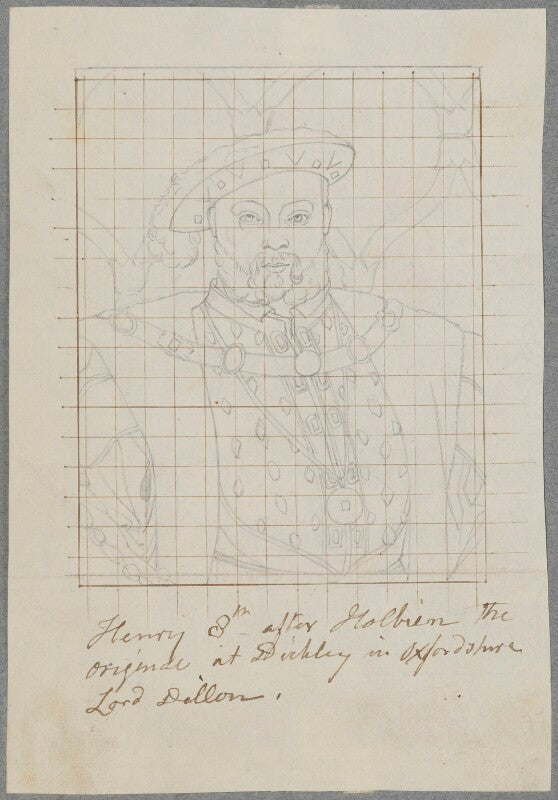 Henry 8th after Holbien the
originae at Dickley in Oxfordshire
Lord Dillon.